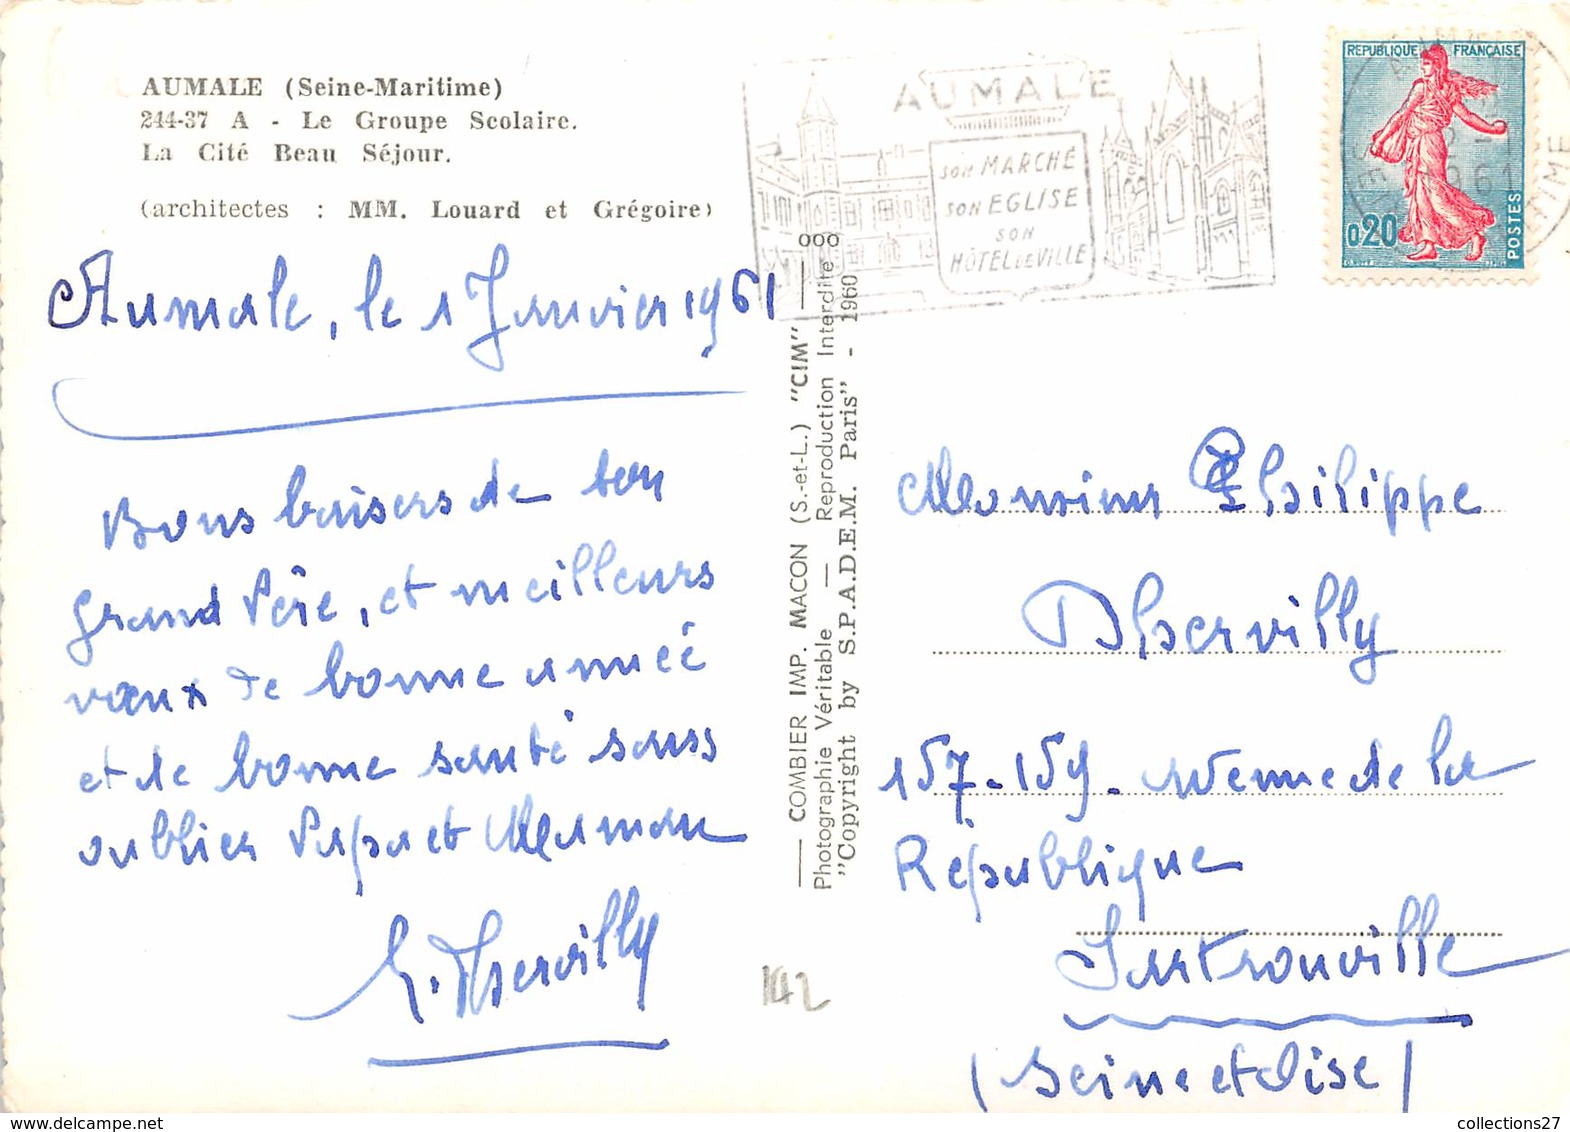 AUMALE (Seine-Maritime)
244-37 A - Le Groupe Scolaire.
La Cité Beau Séjour.
(architectes : MM. Louard et Grégoire)
Aumale, le 1 Janvier 1961
Bons baisers de ton
grand Père, et meilleurs
vœux de bonne année
et de bonne santé sans
oublier Papa et Maman
AUMALE
SON MARCHÉ
SON EGLISE
SON
HÔTEL DE VILLE
REPUBLIQUE FRANÇAISE
0,20
POSTES
COMBIER IMP. MACON (S.-et-L.) "CIM"
Photographie Véritable — Reproduction Interdite
"Copyright by S.P.A.D.E.M. Paris" - 1960
Monsieur Philippe
Dhervilly
157-159. Avenue de la
République
Sartrouville
(Seine et Oise)
142
collections27